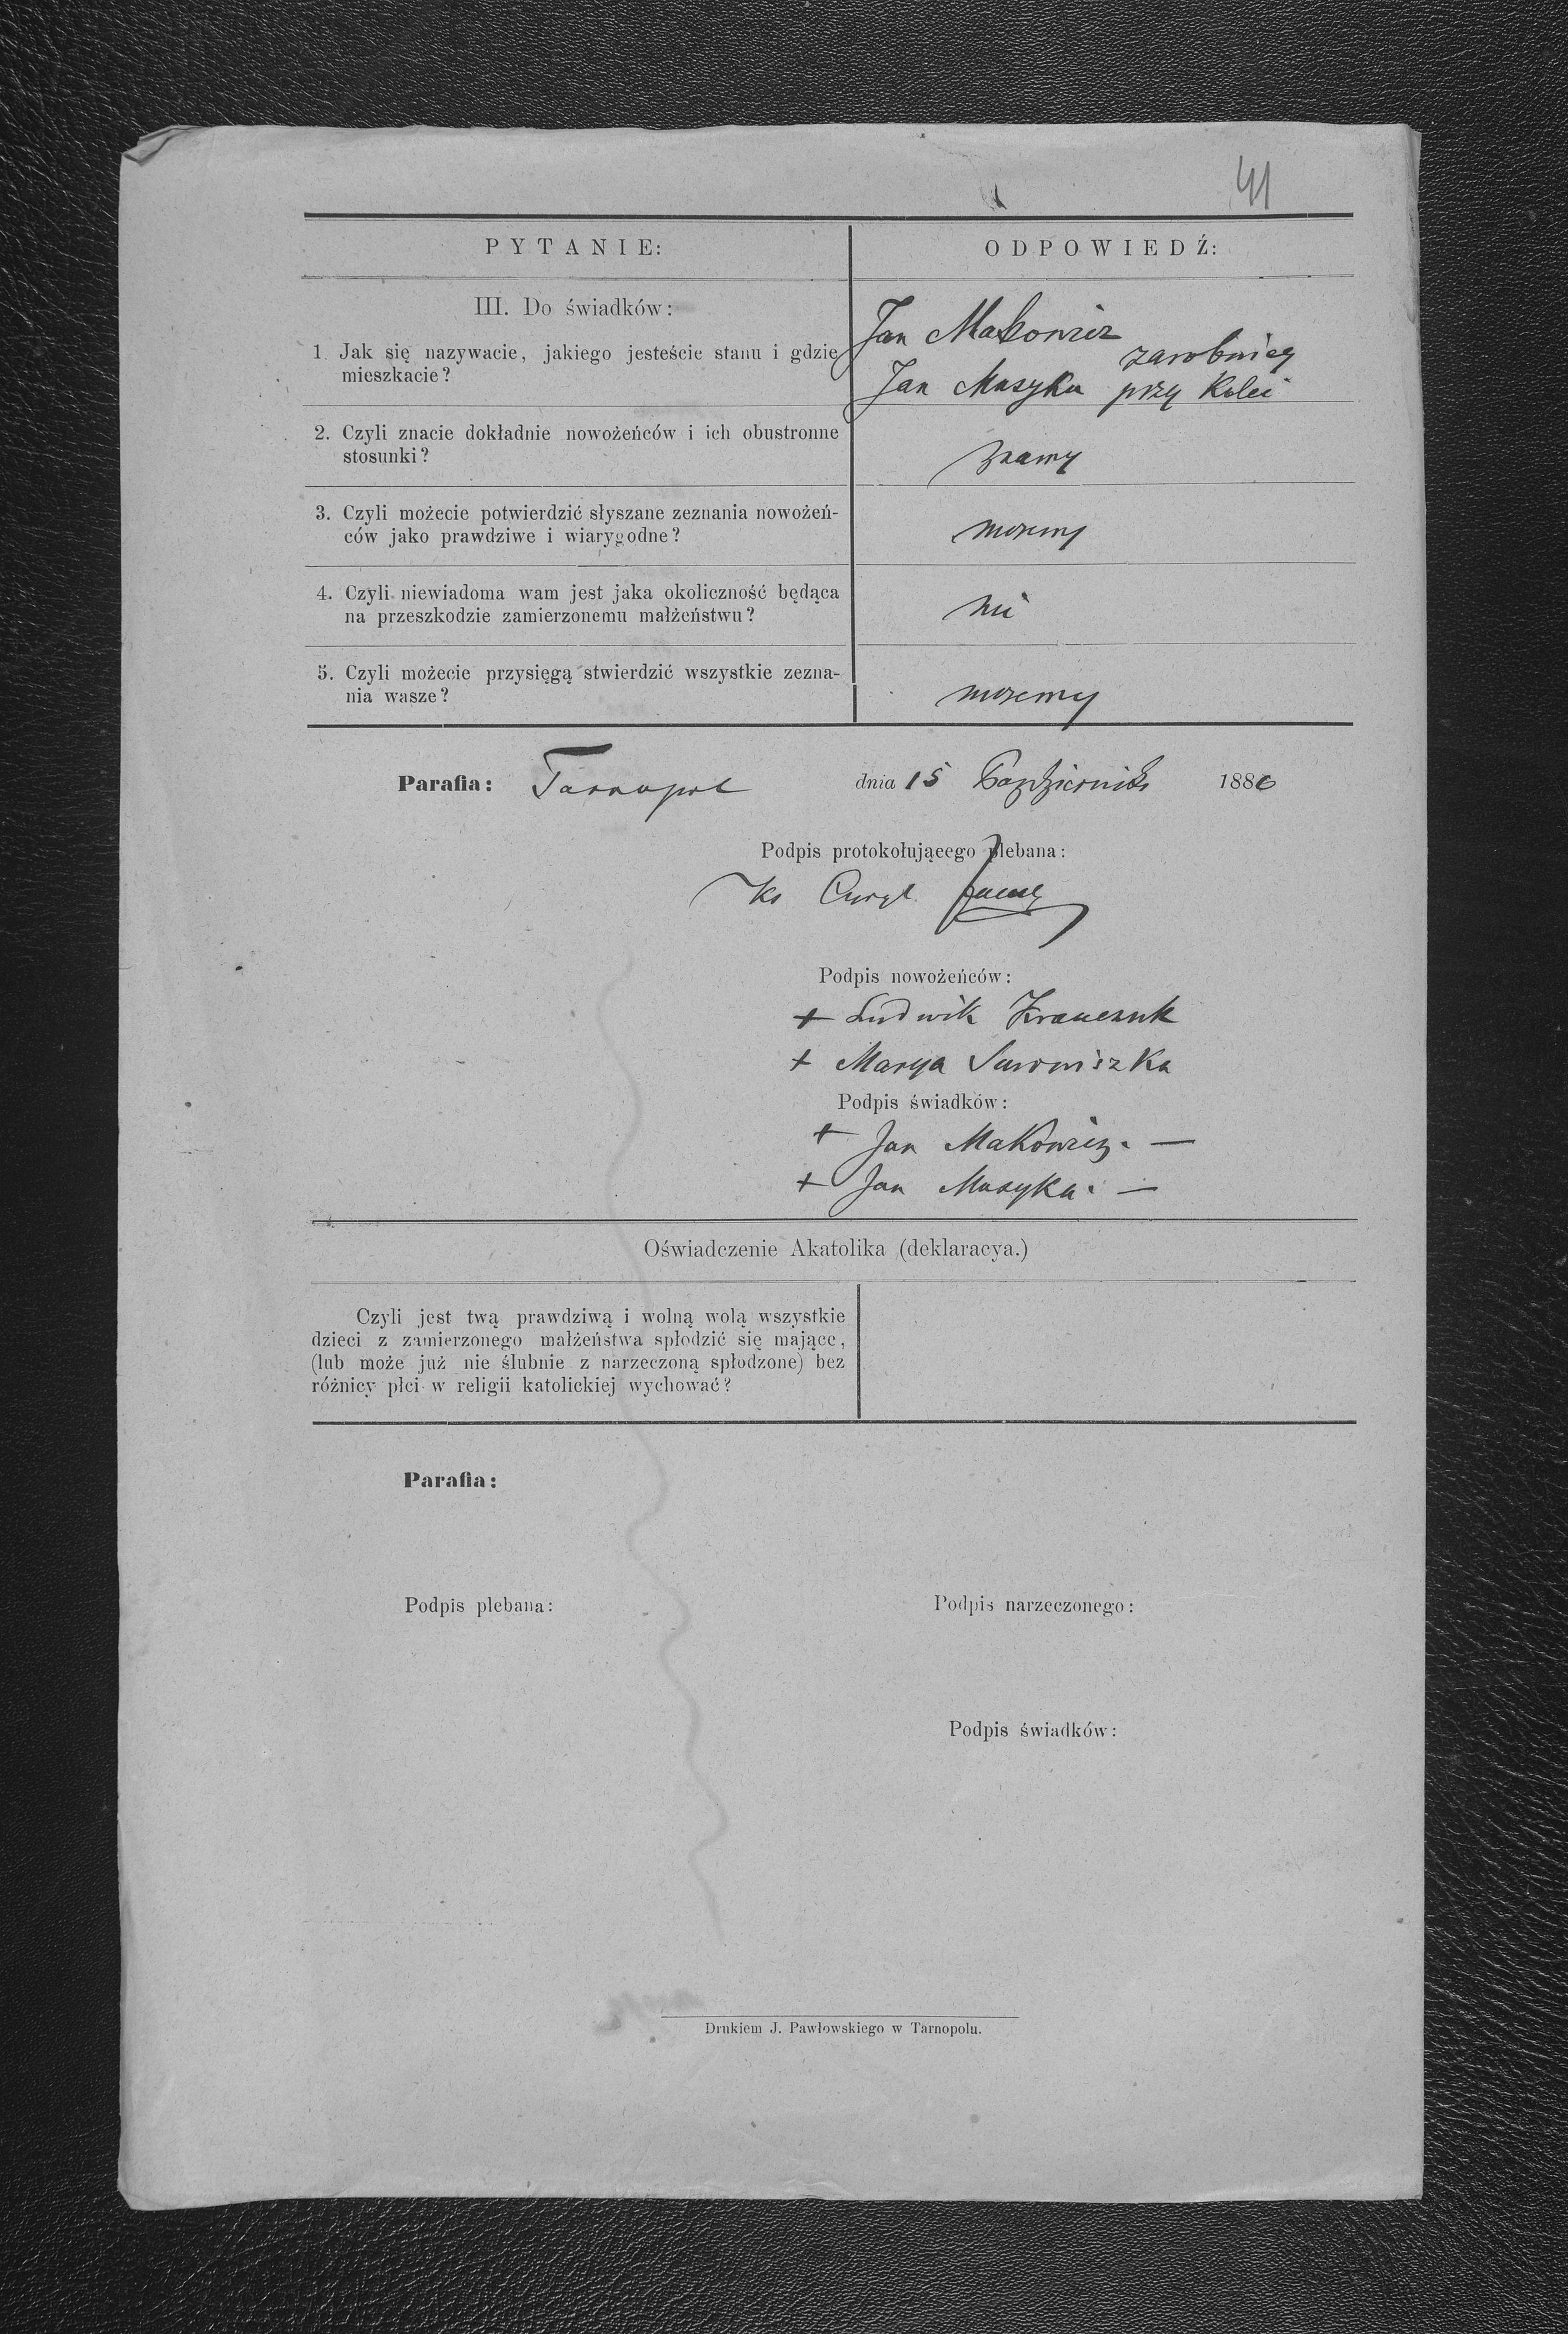 41
PYTANIE:
ODPOWIEDŹ:
III. Do świadków:
1. Jak się nazywacie, jakiego jesteście stanu i gdzie
mieszkacie?
Jan Makowicz
zarobnicy
Jan Muzyka przy Kolei
2. Czyli znacie dokładnie nowożeńców i ich obustronne
stosunki?
znamy
3. Czyli możecie potwierdzić słyszane zeznania nowożeń-
ców jako prawdziwe i wiarygodne?
możemy
4. Czyli niewiadoma wam jest jaka okoliczność będąca
na przeszkodzie zamierzonemu małżeństwu?
nie
5. Czyli możecie przysięgą stwierdzić wszystkie zezna-
nia wasze?
możemy
Parafia: Tarnopol dnia 15 Październik 1886
Podpis protokołująeego plebana:
Ks Cyryl
Podpis nowożeńców:
+ Ludwik Krawczuk
+ Marya
Podpis świadków:
+ Jan Makowicz. —
+ Jan Muzyka. —
Oświadczenie Akatolika (deklaracya.)
Czyli jest twą prawdziwą i wolną wolą wszystkie
dzieci z zamierzonego małżeństwa spłodzić się mające,
(lub może już nie ślubnie z narzeczoną spłodzone) bez
różnicy płci w religii katolickiej wychować?
Parafia:
Podpis plebana:
Podpis narzeczonego:
Podpis świadków:
Drukiem J. Pawłowskiego w Tarnopolu.